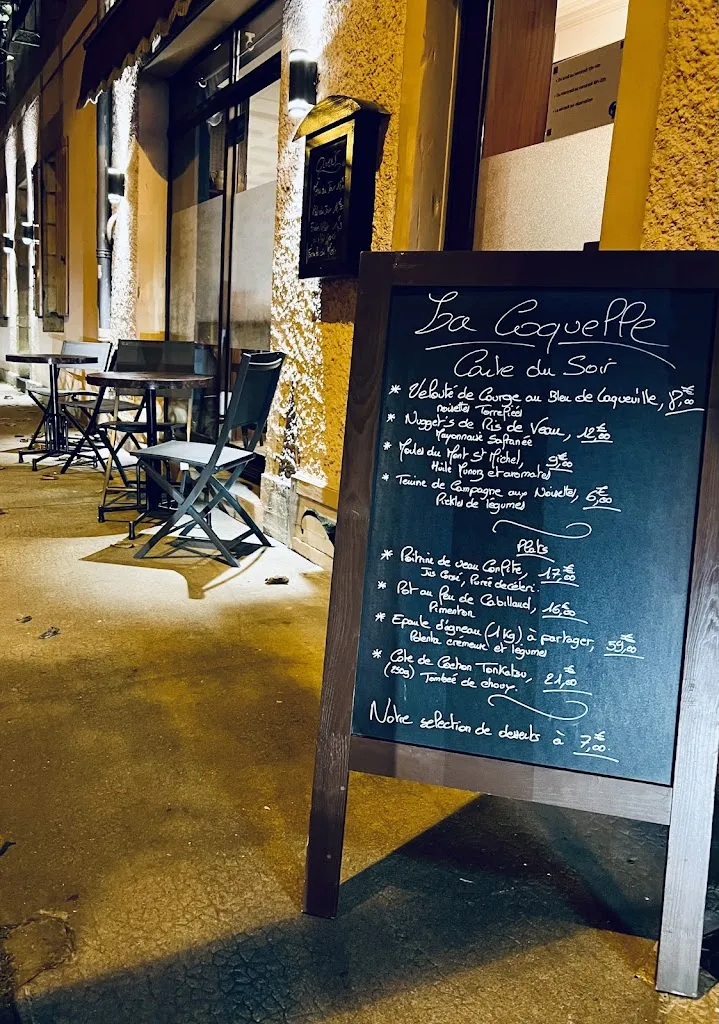 La Coquelle
Carte du Soir
* Velouté de Courge au Bleu de Laqueuille, 8,00€
noisettes Torrefiées
* Nugget's de Ris de Veau, 12,00€
Mayonnaise safranée
* Moules du Mont St Michel, 9,00€
Huile Munoz et aromates
* Terrine de Campagne aux Noisettes, 6,00€
Pickles de légumes
Plats
* Poitrine de veau Confite, 17,00€
Jus Corsé, Purée de céleri.
* Pot au Feu de Cabillaud, 16,00€
Pimenton
* Epaule d'agneau (1Kg) à partager, 59,00€
Polenta cremeuse et legumes
* Cote de Cochon Tonkatsu, 21,00€
(250g) Tombée de choux.
Notre selection de desserts à 7,00€.